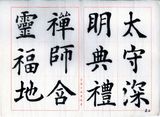 太守深
明典禮
禪師
靈福地